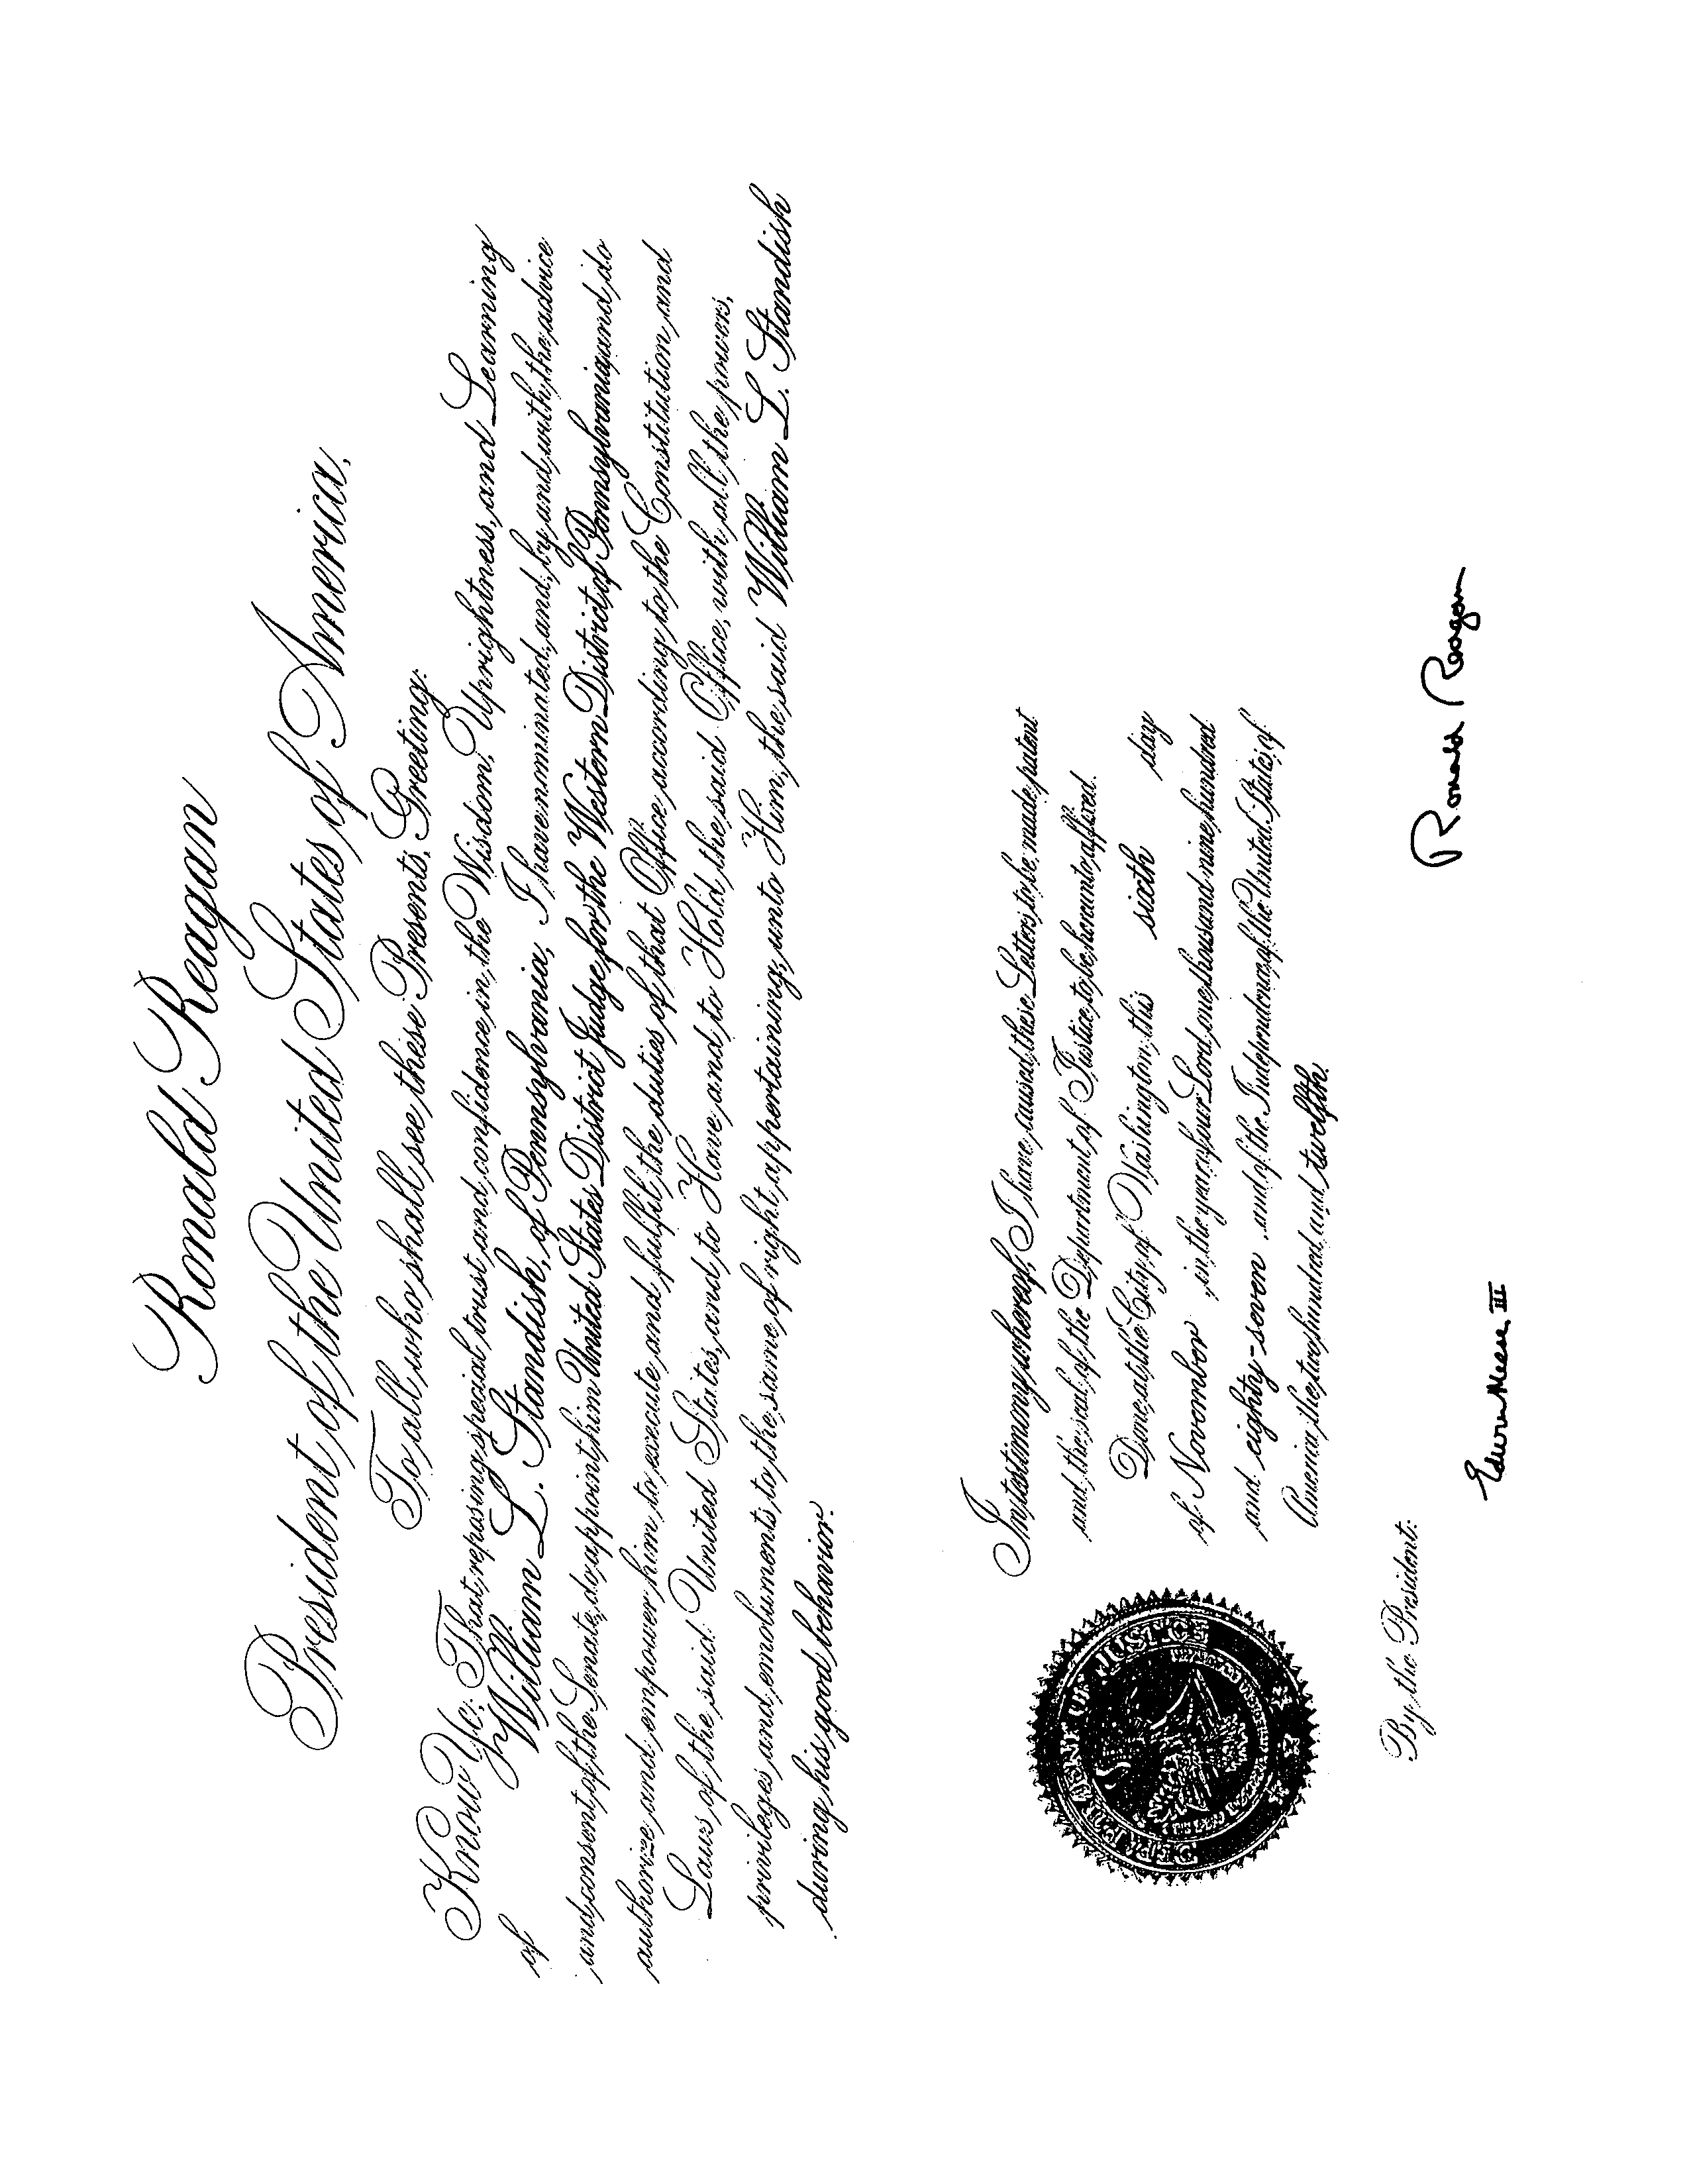 Ronald Reagan
President of the United States of America,
To all who shall see these Presents, Greeting:
Know Ye: That reposing special trust and confidence in the Wisdom, Uprightness, and Learning
of William L. Standish, of Pennsylvania, I have nominated, and, by and with the advice
and consent of the Senate, do appoint him United States District Judge for the Western District of Pennsylvania, and do
authorize and empower him to execute and fulfil the duties of that Office according to the Constitution and
Laws of the said United States, and to Have and to Hold the said Office, with all the powers,
privileges and emoluments to the same of right appertaining, unto Him, the said William L. Standish
during his good behavior.
In testimony whereof, I have caused these Letters to be made patent
and the seal of the Department of Justice to be hereunto affixed.
Done at the City of Washington this sixth day
of November in the year of our Lord one thousand nine hundred
and eighty-seven and of the Independence of the United States of
America the two hundred and twelfth.
DEPARTMENT OF JUSTICE
Ronald Reagan
By the President:
Edwin Meese III